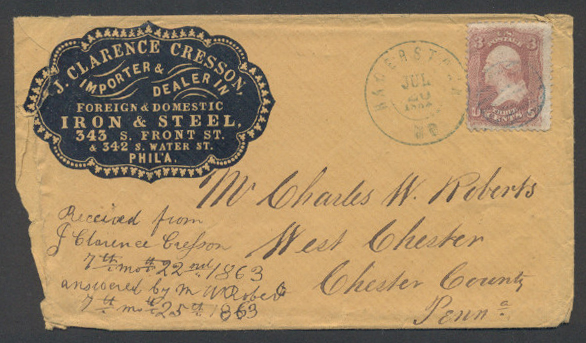 J. CLARENCE CRESSON,
IMPORTER &
DEALER IN
FOREIGN & DOMESTIC
IRON & STEEL,
343 S. FRONT ST.
& 342 S. WATER ST.
PHIL'A.
HAGERSTOWN
JUL
20
MD
3 U.S. POSTAGE 3
U THREE S
CENTS
Mr Charles W. Roberts
West Chester
Chester County
Penna
Received from
J Clarence Cresson
7th mo 22nd 1863
answered by m A Robe
7th mo 25th 1863